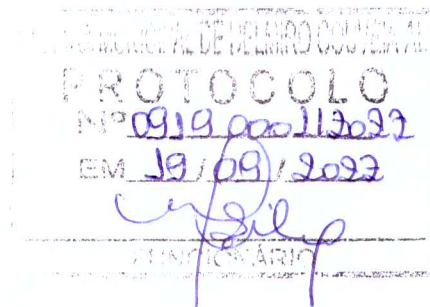 MUNICIPAL DE DELMIRO GOUVEIA AL
PROTOCOLO
Nº 0919 000112022
EM 19/09/2022
FUNCIONÁRIO